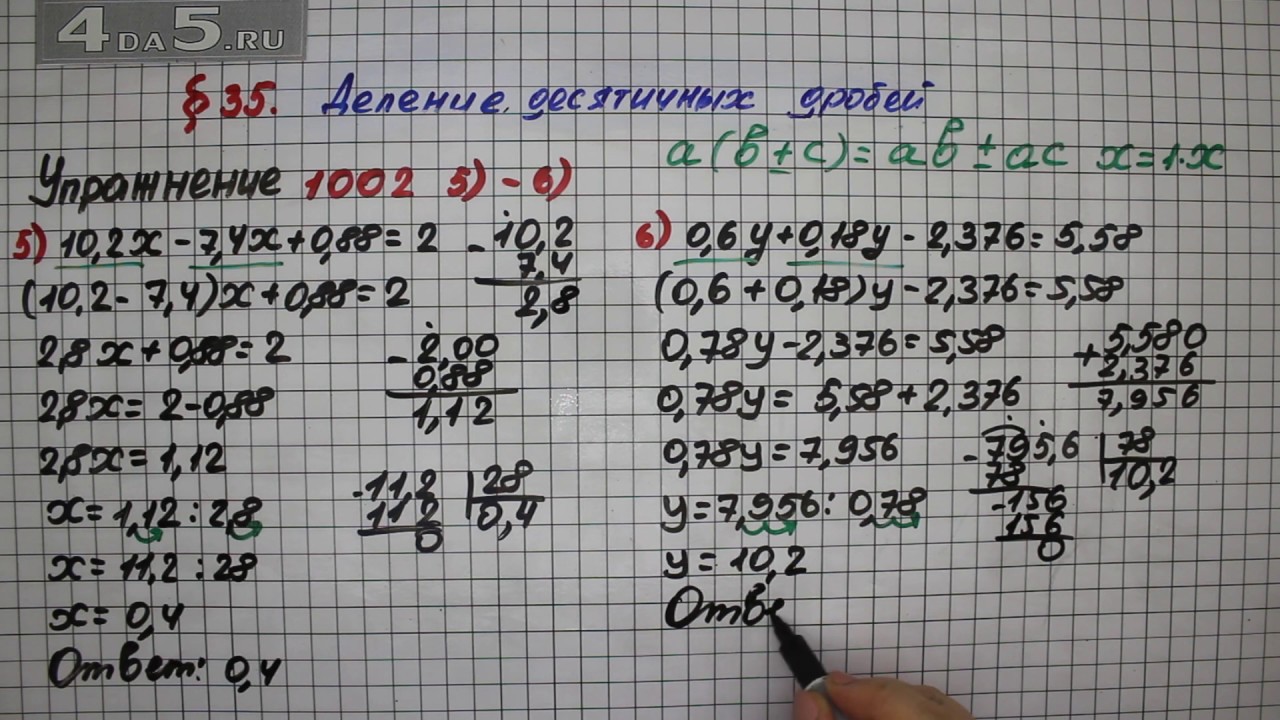 4DA5.RU
§ 35. Деление десятичных дробей
a(b±c)=ab±ac x=1·x
Упражнение 1002 5)-6)
5) 10,2x-7,4x+0,88=2
(10,2-7,4)x+0,88=2
2,8x+0,88=2
2,8x=2-0,88
2,8x=1,12
x=1,12:2,8
x=11,2:28
x=0,4
Ответ: 0,4
-10,2
7,4
2,8
-2,00
0,88
1,12
-11,2 28
112 0,4
0
6) 0,6y+0,18y-2,376=5,58
(0,6+0,18)y-2,376=5,58
0,78y-2,376=5,58
0,78y=5,58+2,376
0,78y=7,956
y=7,956:0,78
y=10,2
Отве
+5,580
2,376
7,956
-795,6 78
78 10,2
-156
156
0